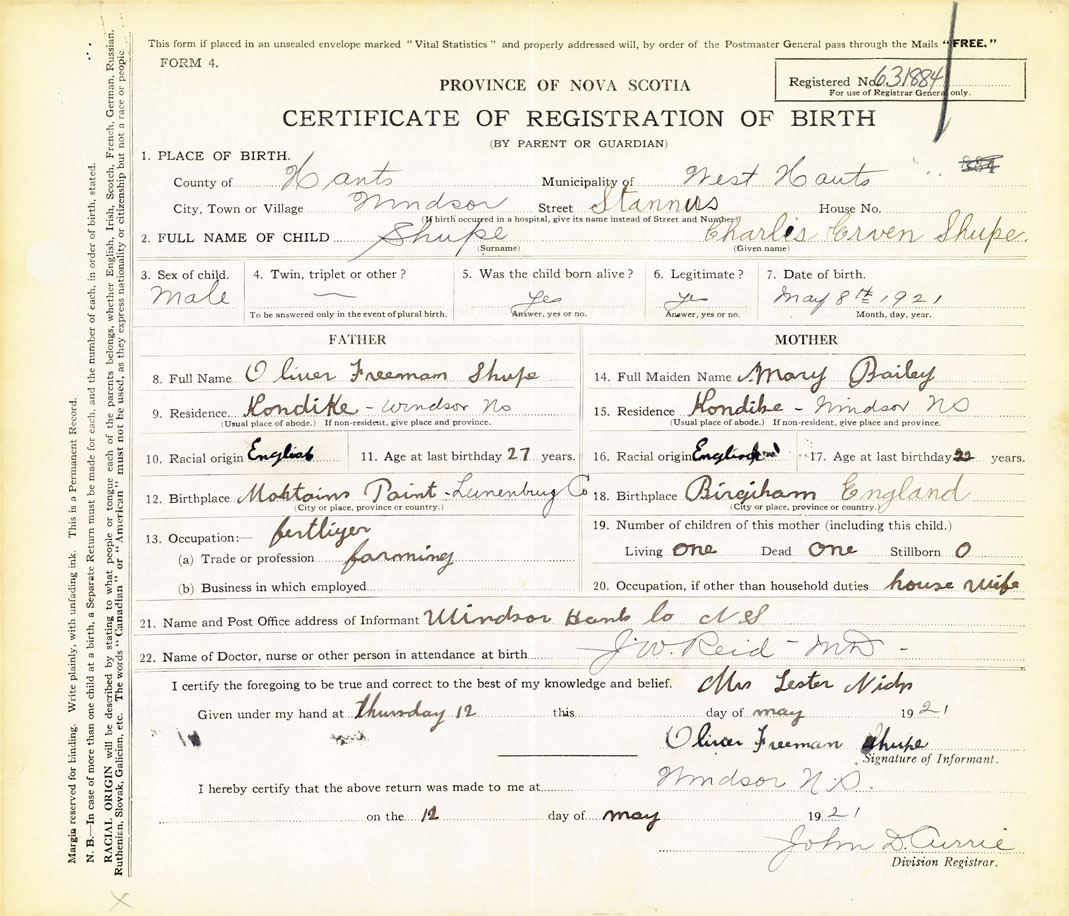 This form if placed in an unsealed envelope marked "Vital Statistics" and properly addressed will, by order of the Postmaster General pass through the Mails "FREE."
FORM 4.
PROVINCE OF NOVA SCOTIA
Registered No. 631884
For use of Registrar General only.
CERTIFICATE OF REGISTRATION OF BIRTH
(BY PARENT OR GUARDIAN)
1. PLACE OF BIRTH.
384
County of Hants Municipality of West Hants
City, Town or Village Windsor Street Stannus House No.
(If birth occurred in a hospital, give its name instead of Street and Number)
2. FULL NAME OF CHILD Shupe Charlis Erven Shupe
(Surname) (Given name)
3. Sex of child. 4. Twin, triplet or other? 5. Was the child born alive? 6. Legitimate? 7. Date of birth.
Male — Yes Yes May 8th 1921
To be answered only in the event of plural birth. Answer, yes or no. Answer, yes or no. Month, day, year.
FATHER MOTHER
8. Full Name Oliver Freeman Shupe 14. Full Maiden Name Mary Bailey
9. Residence Kondike - Windsor Ns 15. Residence Kondike - Windsor NS
(Usual place of abode.) If non-resident, give place and province. (Usual place of abode.) If non-resident, give place and province.
10. Racial origin English 11. Age at last birthday 27 years. 16. Racial origin English 17. Age at last birthday 22 years.
12. Birthplace Paint - Lunenburg Co 18. Birthplace Birgiham England
(City or place, province or country.) (City or place, province or country.)
13. Occupation:— fertliyer 19. Number of children of this mother (including this child.)
(a) Trade or profession farming Living one Dead one Stillborn 0
(b) Business in which employed 20. Occupation, if other than household duties house wife
21. Name and Post Office address of Informant Windsor Hants Co NS
22. Name of Doctor, nurse or other person in attendance at birth J.W. Reid - MD -
I certify the foregoing to be true and correct to the best of my knowledge and belief. Mrs Lester
Given under my hand at thursday 12 this day of may 1921
Oliver Freeman Shupe
Signature of Informant.
I hereby certify that the above return was made to me at Windsor N.S.
on the 12 day of may 1921
John D. Currie
Division Registrar.
Margin reserved for binding. Write plainly, with unfading ink. This is a Permanent Record.
N. B.—In case of more than one child at a birth, a Separate Return must be made for each, and the number of each, in order of birth, stated.
RACIAL ORIGIN will be described by stating to what people or tongue each of the parents belongs, whether English, Irish, Scotch, French, German, Russian,
Ruthenian, Slovak, Galician, etc. The words "Canadian" or "American" must not be used, as they express nationality or citizenship but not a race or people.